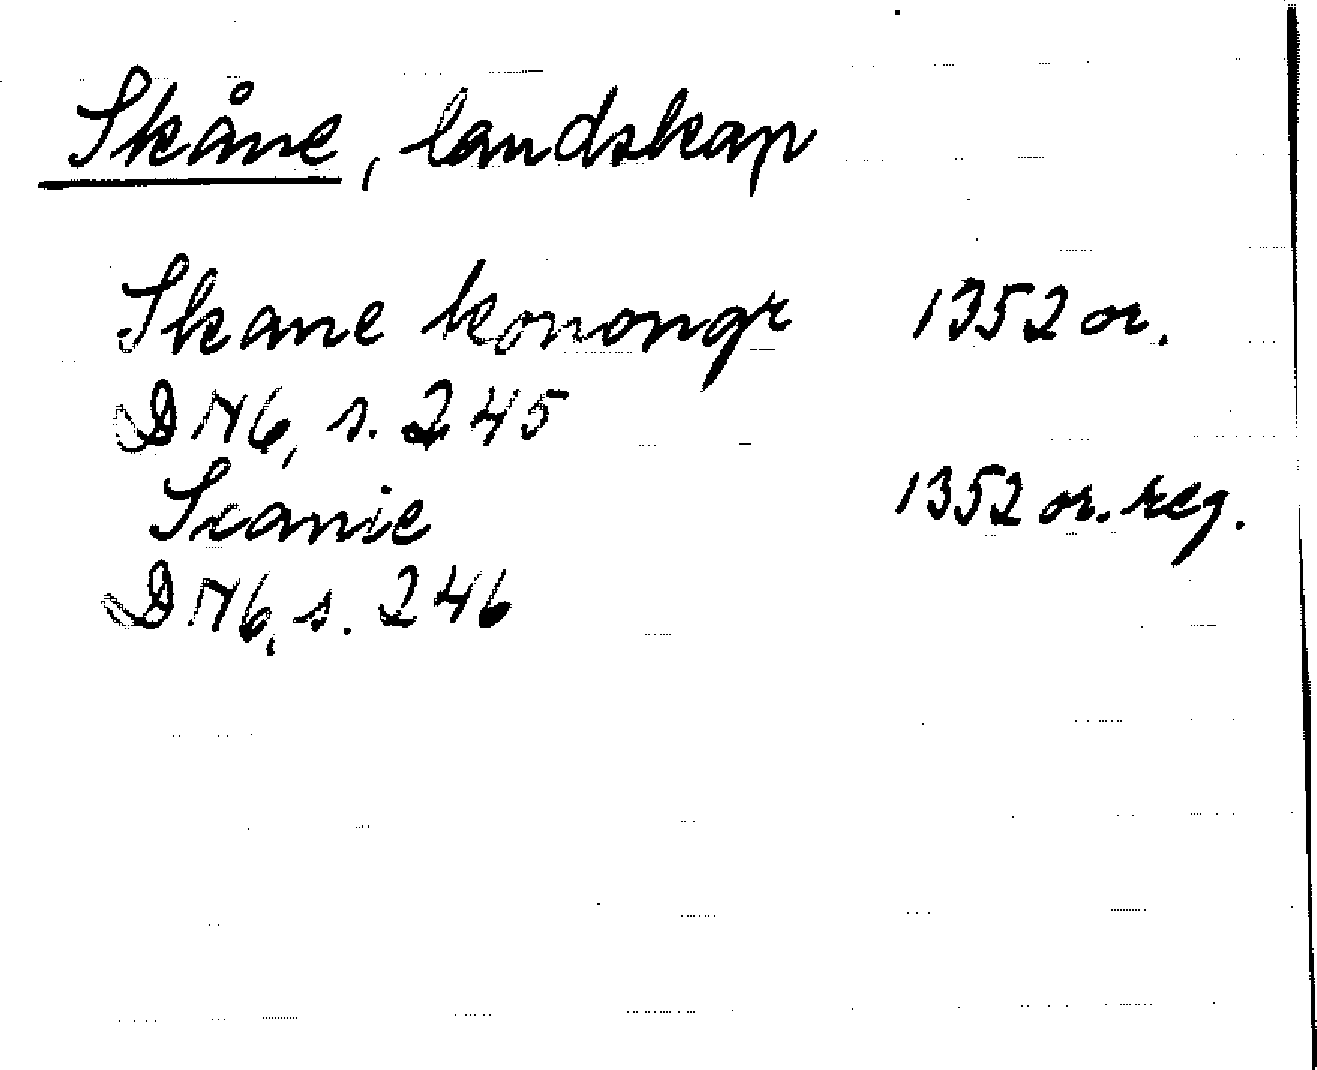 Skåne, landskap
Skane konongr 1352 or.
DN6, s. 245
Scanie 1352 or. reg.
DN6, s. 246